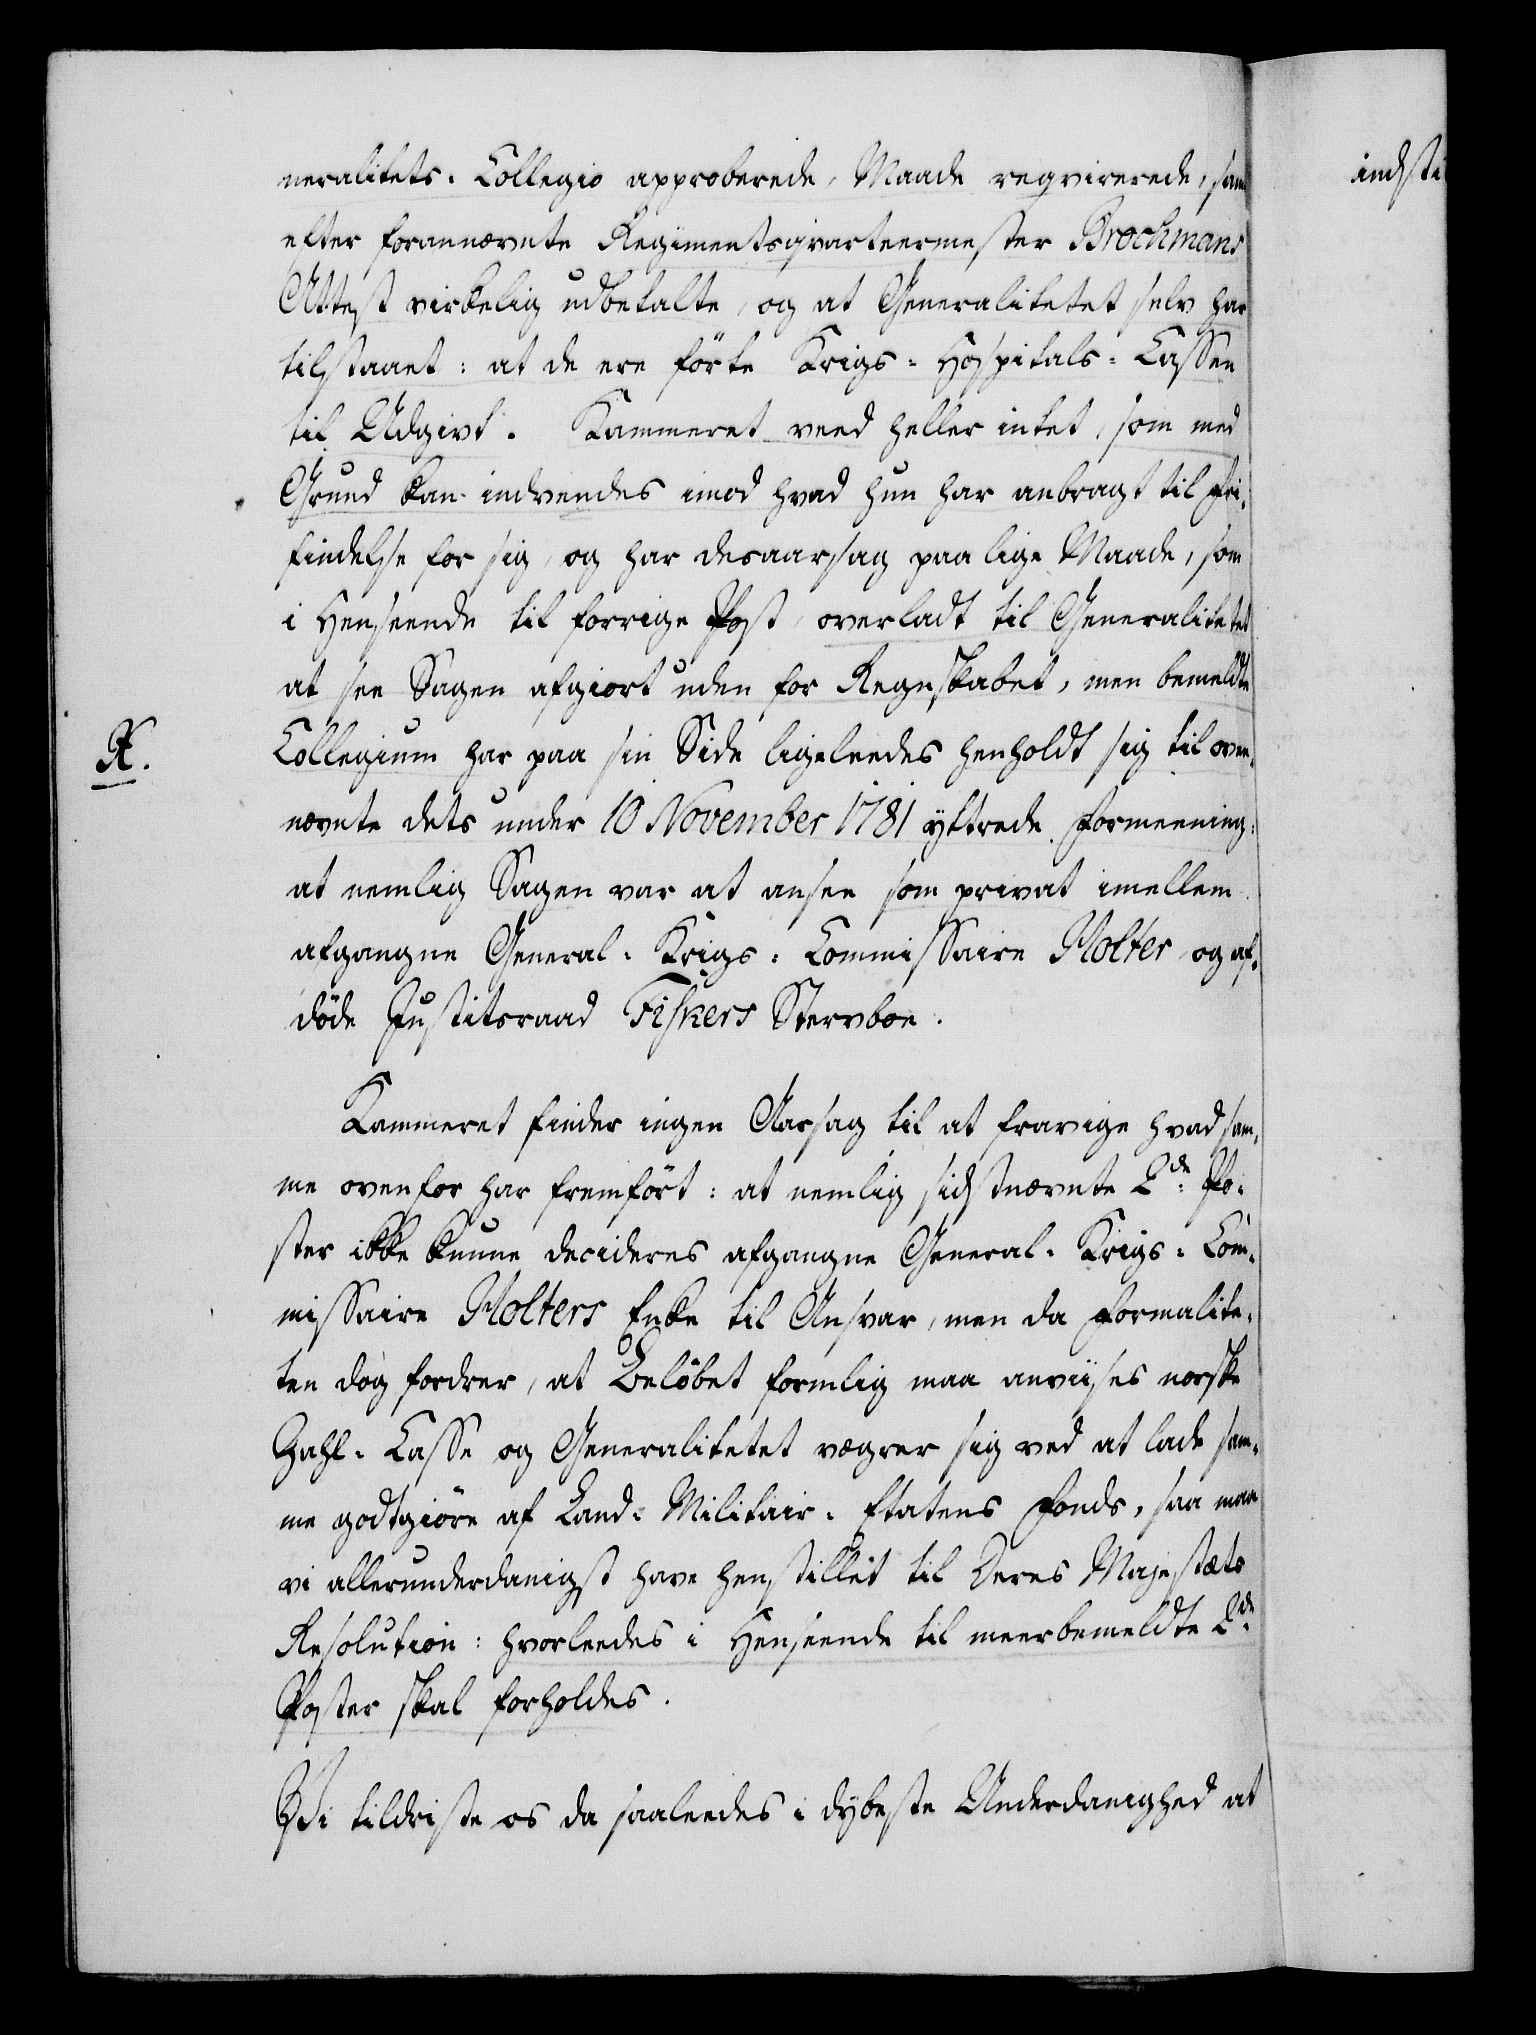 neralitets-Collegio approberede, Maade reqvirerede, sam
efter forannævnte Regimentsqvarteermester Brochmans
Attest virkelig udbetalte, og at Generalitetet selv har
tilstaaet: at de ere förte Krigs-Hospitals-Cassen
til Udgivt. Kammeret veed heller intet, som med
Grund kan indvendes imod hvad hun har anbragt til Fri-
findelse for sig, og har desaarsag paa lige Maade, som
i Henseende til forrige Post, overladt til Generalitetet
at see Sagen afgiort uden for Regnskabet, men bemeldte
Collegium har paa sin Side ligeleedes henholdt sig til oven-
nævnte dets under 10 November 1781 yttrede Formeening:
at nemlig Sagen var at ansee som privat imellem
afgangne General-Krigs-Commissaire Holter og af-
döde Justitsraad Fiskers Stervboe.
Kammeret finder ingen Aarsag til at fravige hvad sam-
me ovenfor har fremfört: at nemlig sidstnævnte 2de Po-
ster ikke kunne decideres afgangne General-Krigs-Com-
missaire Holters Enke til Ansvar, men da Formalite-
ten dog fordrer, at Belöbet formlig maa anviises norske
Zahl-Casse og Generalitetet vægrer sig ved at lade sam-
me godtgiöre af Land-Militair-Etatens Fonds, saa maa
vi allerunderdanigst have henstillet til Deres Majestæts
Resolution: hvorleedes i Henseende til meerbemeldte 2de
Poster skal forholdes.
Vi tildriste os da saaleedes i dybeste Underdanighed at
indsti